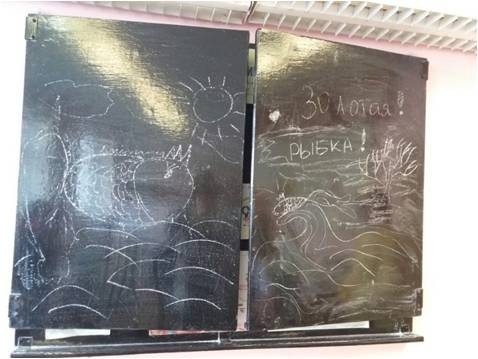 Золотая!
РЫБКА!